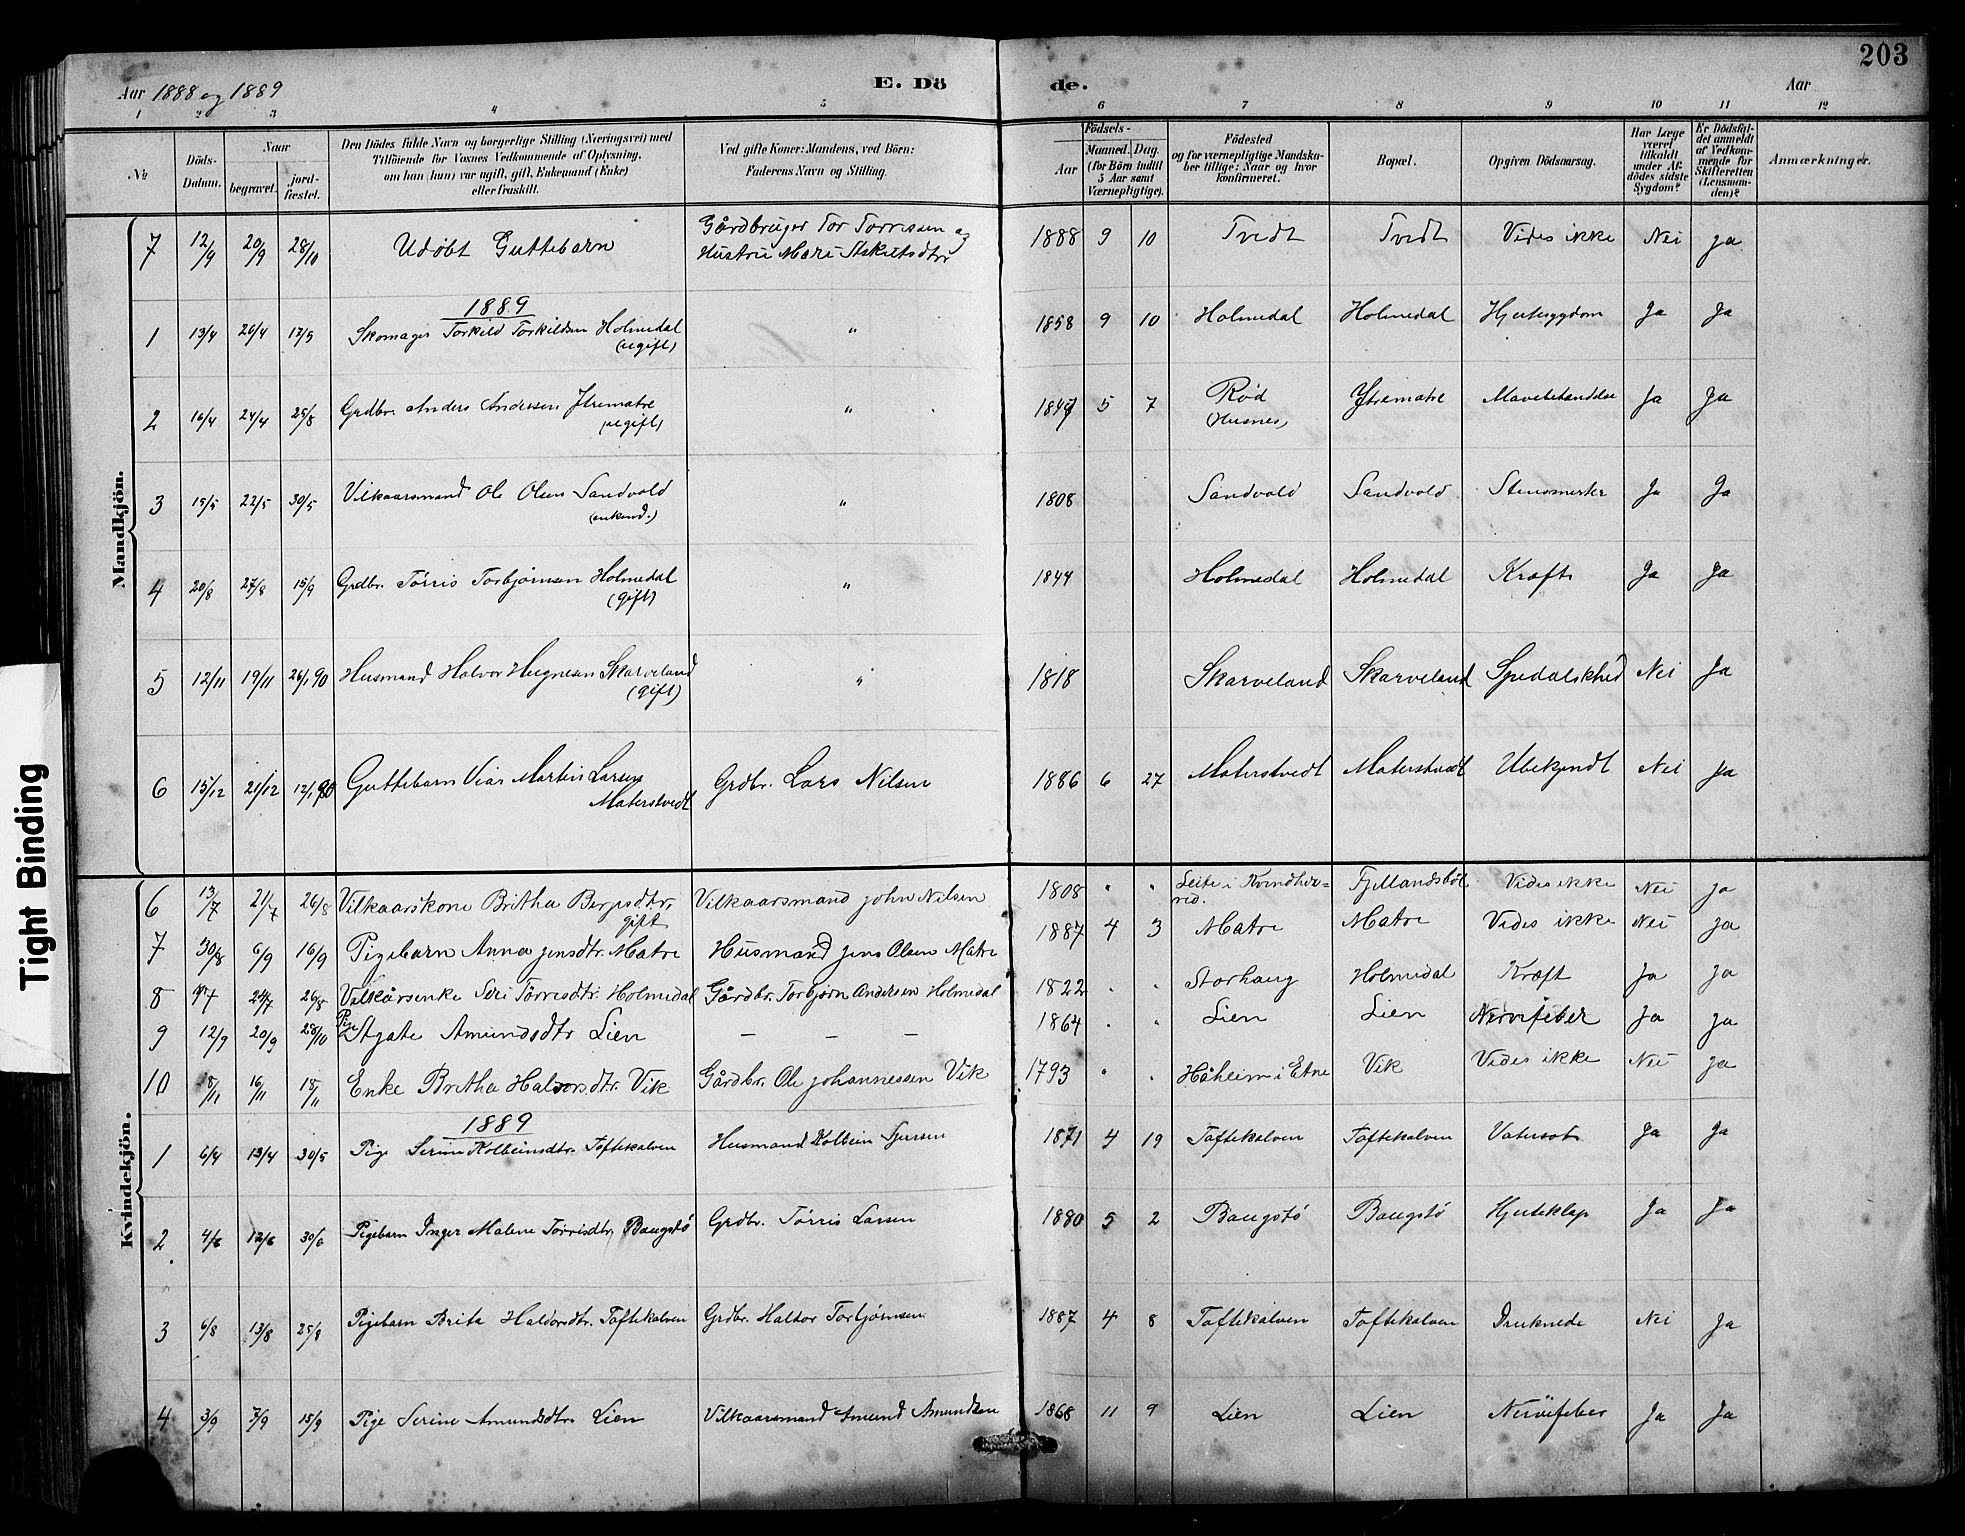 203
Aar 1888 og 1889 E. Dö de. Aar
1 2 3 4 5 6 7 8 9 10 11 12
№
Döds-Datum.
Naar
begravet.
jord-fæstet.
Den Dödes fulde Navn og borgerlige Stilling (Næringsvei) med
Tilföiende for Voxnes Vedkommende af Oplysning,
om han (hun) var ugift, gift, Enkemand (Enke)
eller fraskilt.
Ved gifte Koner: Mandens, ved Börn:
Faderens Navn og Stilling.
Födsels-
Aar
Maaned. Dag.
(for Börn indtil
5 Aar samt
Værnepligtige).
Födested
og for værnepligtige Mandska-
ber tillige: Naar og hvor
konfirmeret.
Bopæl.
Opgiven Dödsaarsag.
Har Læge
været
tilkaldt
under Af-
dödes sidste
Sygdom?
Er Dödsfal-
det anmeldt
af Vedkom-
mende for
Skifteretten
(Lensman-
den)?
Anmærkninger.
Mandkjön.
7 12/9 20/9 28/10 Udöbt Guttebarn Gårdbruger Tor Torrissen og
Hustru Mari 1888 9 10 Tvedt Tvedt Vides ikke Nei ja
1889
1 13/4 26/4 17/5 Skomager Torkild Torkildsen Holmedal
(ugift) " 1858 9 10 Holmedal Holmedal Hjertesygdom Ja Ja
2 16/4 24/4 25/8 Grdbr. Anders Andersen Ytrematre
(ugift) " 1847 5 7 Rød
(Husnes) Ytrematre Ja Ja
3 15/5 22/5 30/5 Vilkaarsmand Ole Olsen Sandvold
(enkemd.) " 1808 Sandvold Sandvold Stensmerter Ja Ja
4 20/8 27/8 15/9 Grdbr. Tørris Torbjørnsen Holmedal
(gift) " 1844 Holmedal Holmedal Kræft Ja Ja
5 12/11 19/11 26/1 90 Husmand Halvor Skarveland
(gift) " 1818 Skarveland Skarveland Spedalskhed Nei Ja
6 15/12 21/12 12/1 90 Guttebarn Martin Larsen
Materstvedt Grdbr. Lars Nilsen 1886 6 27 Materstvedt Materstvedt Ubekjendt Nei Ja
Kvindekjön.
6 13/7 21/7 26/8 Vilkaarskone Britha Bergesdtr,
gift Vilkaarsmand John Nilsen 1808 " " Leite i Kvindher-
red. Fjellandsböl Vides ikke Nei ja
7 30/8 6/9 16/9 Pigebarn Anna Jensdtr. Matre Husmand Jens Olsen Matre 1887 4 3 Matre Matre Vides ikke Nei ja
8 24/7 26/8 Vilkårsenke Siri Tørrisdtr. Holmedal Gårdbr. Torbjørn Andersen Holmedal 1822 " " Storhaug Holmedal Kræft Ja ja
9 12/9 20/9 28/10 Pige Agate Amundsdtr Lien – – – 1864 " " Lien Lien Nervefeber Ja ja
10 8/11 16/11 18/11 Enke Britha Halvorsdtr. Vik Gårdbr. Ole Johannessen Vik 1793 " " Håheim i Etne Vik Vides ikke Nei ja
1889
1 6/4 13/4 30/5 Pige Serine Kolbeinsdtr. Toftekalven Husmand Kolbein 1871 4 19 Toftekalven Toftekalven Vatersot Ja Ja
2 4/6 12/6 30/6 Pigebarn Inger Malene Tørrisdtr. Baugstø Grdbr. Tørris Larsen 1880 5 2 Baugstø Baugstø Hjerteklap Ja Ja
3 6/8 13/8 25/8 Pigebarn Brita Haldorsdtr. Toftekalven Grdbr. Haldor Torbjørnsen 1887 4 8 Toftekalven Toftekalven Druknede Nei Ja
4 3/9 7/9 15/9 Pige Serine Amundsdtr. Lien Vilkaarsmand Amund Amundsen 1868 11 9 Lien Lien Nervefeber Ja Ja
Tight Binding